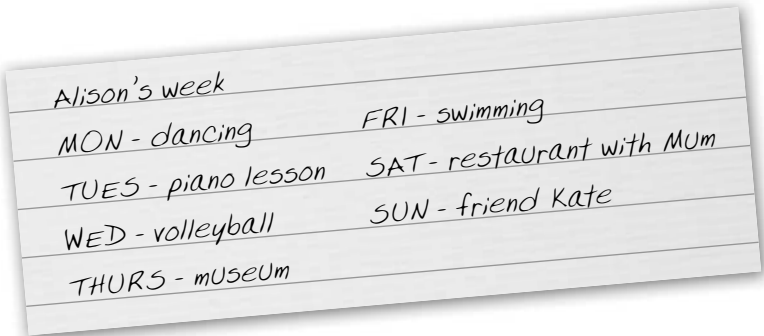 Alison's week
MON - dancing
TUES - piano lesson
WED - volleyball
THURS - museum
FRI - swimming
SAT - restaurant with Mum
SUN - friend Kate